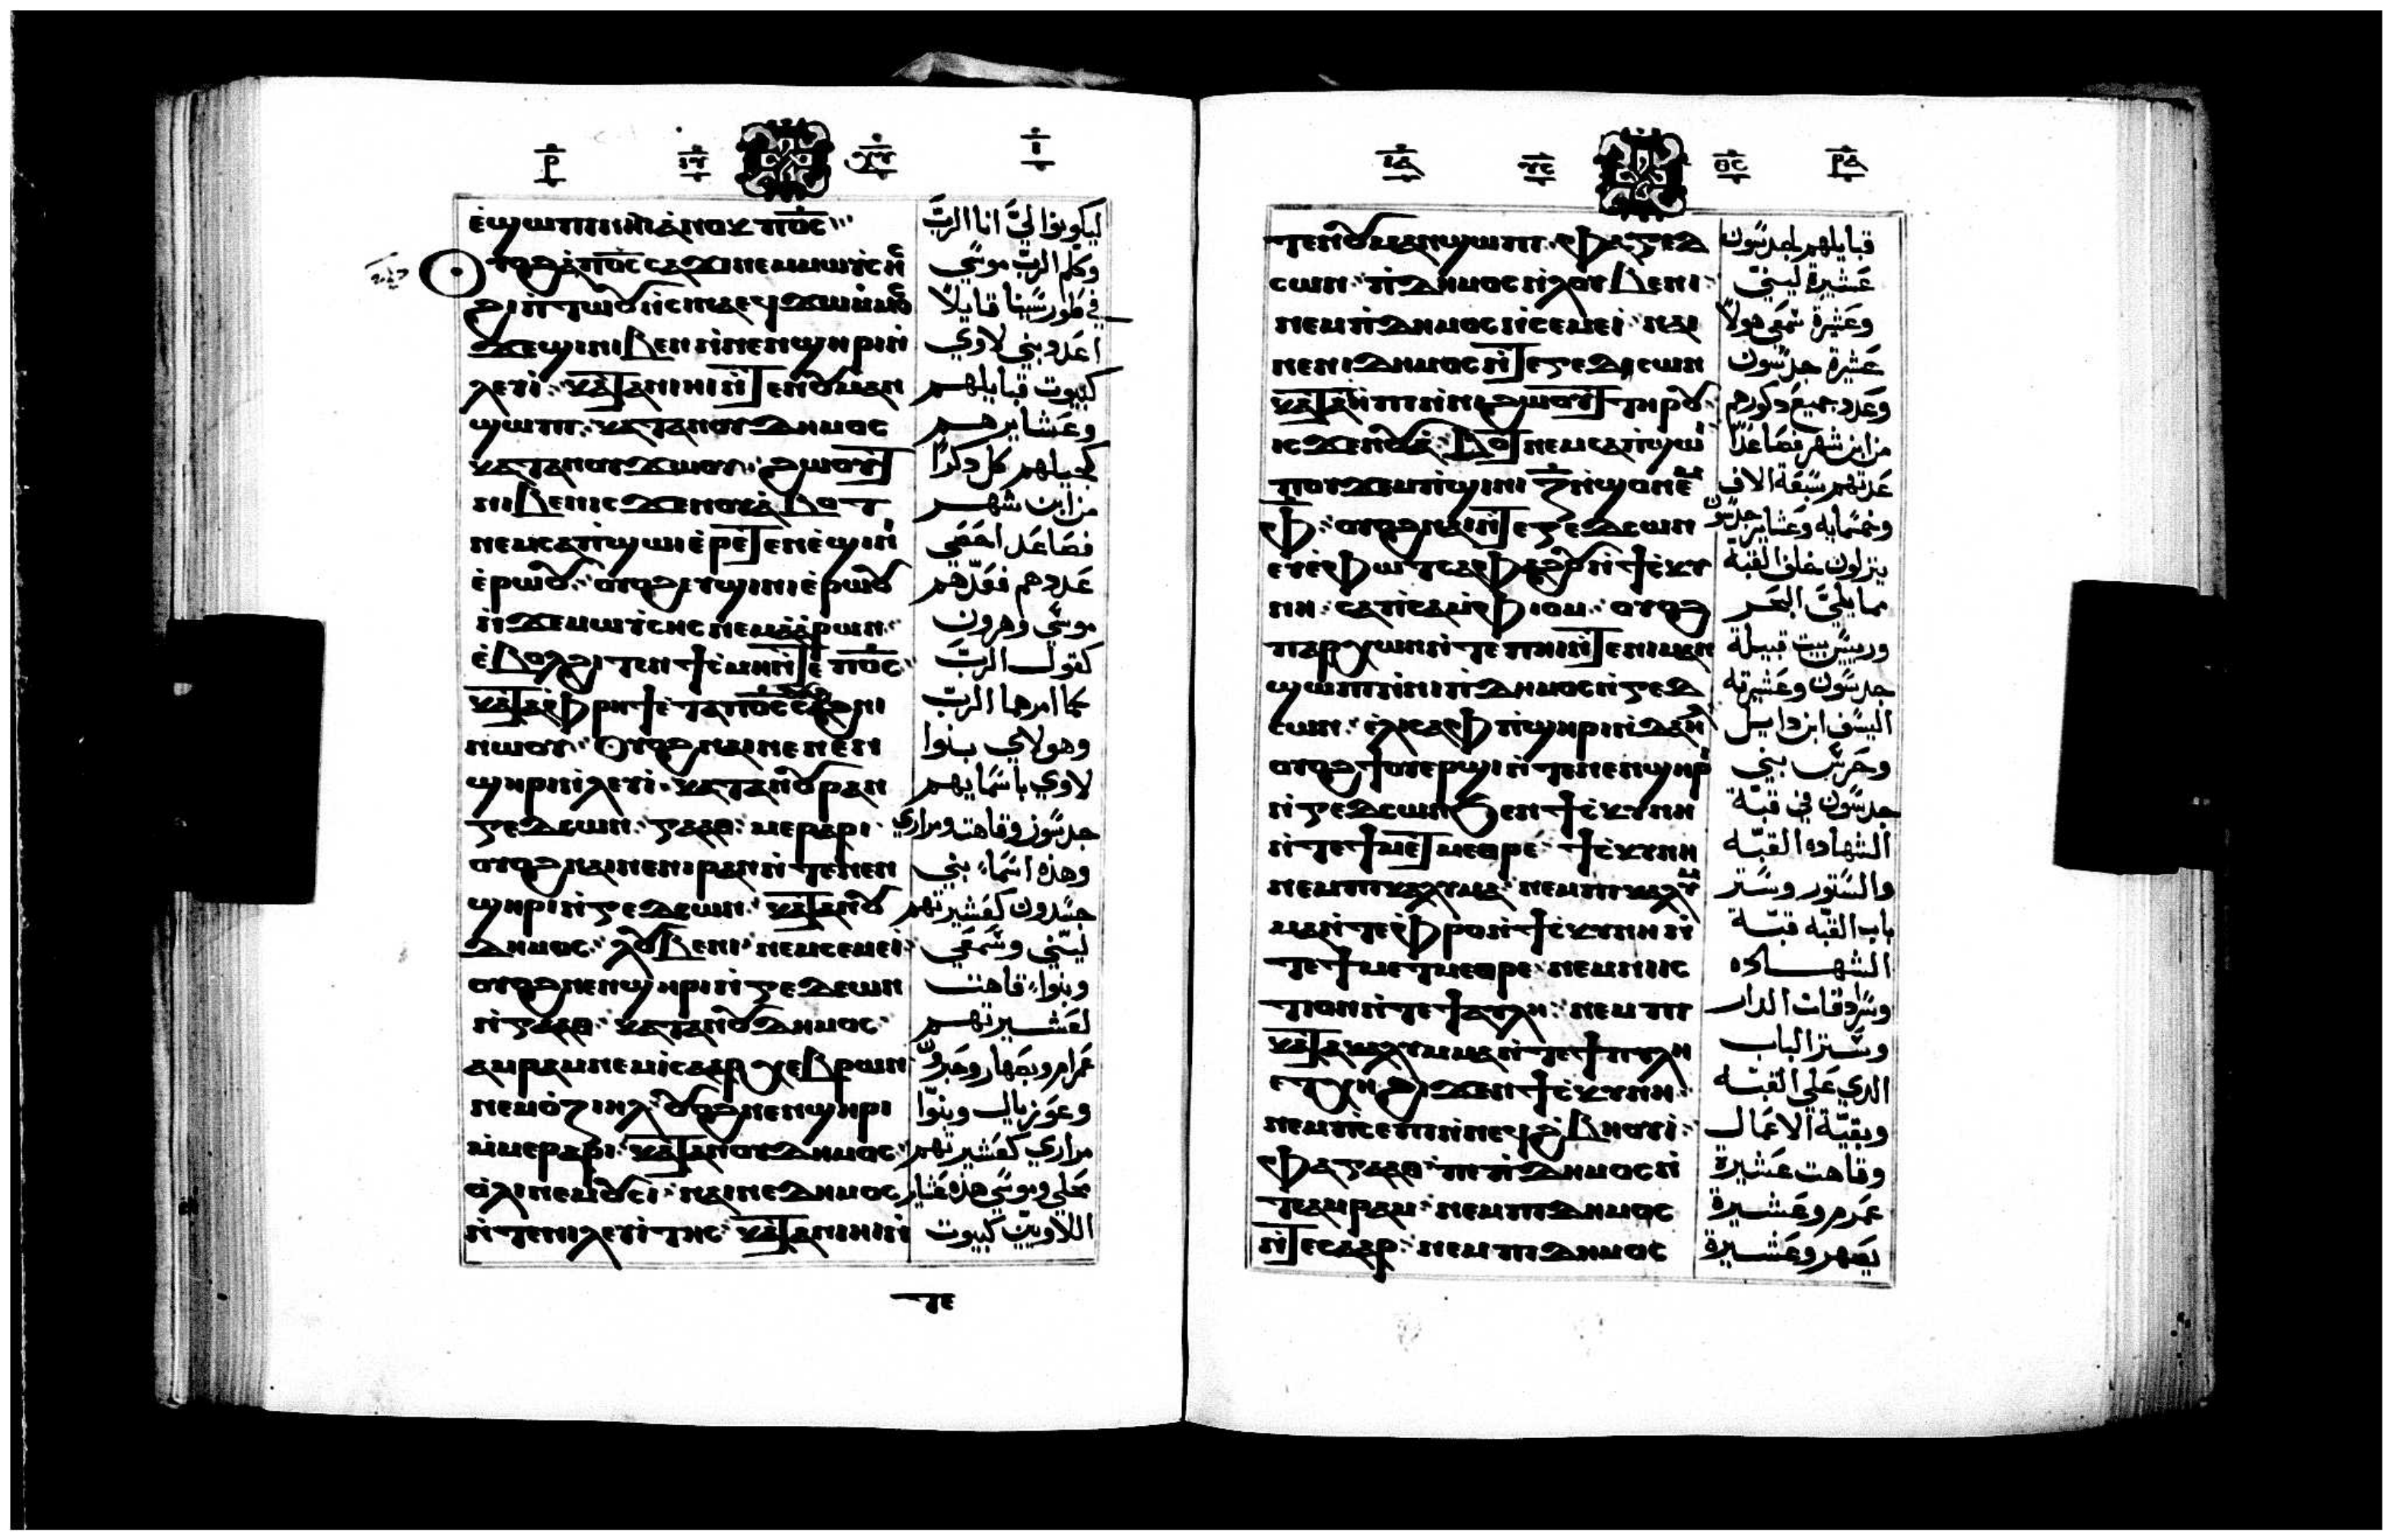 ⲣ̅
ⲓ̅
ⲉ̀ϣⲱⲡⲓ ⲛⲏⲓ ⲁ̀ⲛⲟⲕ ⲡⲟ̅ⲥ̅
ⲟⲩⲟϩ ⲁ̀ ⲡⲟ̅ⲥ̅ ⲥⲁϫⲓ ⲛⲉⲙ ⲙⲱⲩⲥⲏⲥ
ϩⲓ ⲡ̀ⲧⲱⲟⲩ ⲛ̀ⲥⲓⲛⲁ ⲉϥϫⲱ ⲙ̀ⲙⲟⲥ
ϫⲉ ϣⲓⲛⲓ ⲃⲉⲛ ⲛ̀ⲛⲉⲛϣⲏⲣⲓ ⲛ̀
ⲗⲉⲩⲓ̀ ⲕⲁⲧⲁ ⲛⲓⲏⲓ ⲛ̀ⲧⲉ ⲛⲟⲩⲙⲁⲛ
ϣⲱⲡⲓ ⲕⲁⲧⲁ ⲛⲟⲩⲇⲏⲙⲟⲥ
ⲕⲁⲧⲁ ⲛⲟⲩϫⲱⲟⲩ ϩⲱⲟⲩⲧ
ⲛⲓⲃⲉⲛ ⲓⲥϫⲉⲛ ⲟⲩⲁ̀ⲃⲟⲧ
ⲛⲉⲙ ⲥⲁⲡ̀ϣⲱⲓ ⲉ̀ⲣⲉⲧⲉⲛⲉ̀ϣⲓⲛⲓ
ⲉ̀ⲣⲱⲟⲩ ⲟⲩⲟϩ ⲉⲧϣⲓⲛⲓ ⲉ̀ⲣⲱⲟⲩ
ⲛ̀ϫⲉ ⲙⲱⲩⲥⲏⲥ ⲛⲉⲙ ⲁ̀ⲁ̀ⲣⲱⲛ
ⲉ̀ⲃⲟⲗ ϩⲓⲧⲉⲛ ϯⲥ̀ⲙⲏ ⲛ̀ⲧⲉ ⲡⲟ̅ⲥ̅
ⲕⲁⲧⲁ ⲫ̀ⲣⲏϯ ⲉ̀ⲧⲁ ⲡⲟ̅ⲥ̅ ⲥⲁϩⲛⲓ
ⲛⲱⲟⲩ ⲟⲩⲟϩ ⲛⲁⲓ ⲛⲉ ⲛⲉⲛ
ϣⲏⲣⲓ ⲛ̀ⲗⲉⲩⲓ̀ ⲕⲁⲧⲁ ⲛⲟⲩⲣⲁⲛ
ⲅⲉⲇⲥⲱⲛ ⲅⲁⲁⲑ ⲙⲉⲣⲁⲣⲓ
ⲟⲩⲟϩ ⲛⲁⲓ ⲛⲉ ⲛⲓⲣⲁⲛ ⲛ̀ⲧⲉ ⲛⲉⲛ
ϣⲏⲣⲓ ⲛ̀ⲅⲉⲇⲥⲱⲛ ⲕⲁⲧⲁ ⲛⲟⲩ
ⲇⲏⲙⲟⲥ ⲗⲟⲩⲃⲉⲛⲓ ⲛⲉⲙ ⲥⲉⲙⲉⲓ
ⲟⲩⲟϩ ⲛⲉⲛϣⲏⲣⲓ ⲛ̀ⲅⲉⲇⲉⲱⲛ
ⲛ̀ⲅⲁⲁⲑ ⲕⲁⲧⲁ ⲛⲟⲩⲇⲏⲙⲟⲥ
ⲁⲙⲣⲁⲙ ⲛⲉⲙ ⲓⲥⲁⲁⲣ ⲭⲉⲃⲣⲱⲛ
ⲛⲉⲙ ⲟ̀ⲍⲓⲏⲗ ⲟⲩⲟϩ ⲛⲉⲛϣⲏⲣⲓ
ⲙ̀ⲙⲉⲣⲁⲣⲓ ⲕⲁⲧⲁ ⲛⲟⲩⲇⲏⲙⲟⲥ
ⲟ̀ⲗⲓ ⲛⲉⲙ ⲟⲩⲥⲓ ⲛⲁⲓ ⲛⲉ ⲇⲏⲙⲟⲥ
ⲛ̀ⲧⲉ ⲛⲓⲗⲉⲩⲓ̀ⲧⲏⲥ ⲕⲁⲧⲁ ⲛⲓⲏⲓ ⲛ̀
ⲧⲉ
ليكونوا لي انا الرب
وكلم الرب موسي
في طور سينا قايلا
اعدد بني لاوي
كبيوت قبايلهم
وعشايرهم
كجيلهم كل دكرا
من ابن شهر
فصاعد احصي
عددهم فعدهم
موسي وهرون
كقول الرب
كما امرهما الرب
وهولاي بنوا
لاوي باسمايهم
جدسون وقاهت ومراري
وهذه اسما بني
جسدون كعشيرتهم
ليبني وشمعي
وبنوا قاهت
لعشيرتهم
عمرام ويصهار وحبرون
وعوزيال وبنوا
مراري كعشيرتهم
محلي وموسي هذه عشاير
اللاويين كبيوت
ⲓⲁ̅
ⲣⲁ̅
ⲧⲉ ⲛⲟⲩⲙⲁⲛϣⲱⲡⲓ ⲫⲁ ⲅⲉⲇ
ⲥⲱⲛ ⲡ̀ⲇⲏⲙⲟⲥ ⲛ̀ⲗⲟⲩⲃⲉⲛⲓ
ⲛⲉⲙ ⲡ̀ⲇⲏⲙⲟⲥ ⲛ̀ⲥⲉⲙⲉⲓ ⲛⲁⲓ
ⲛⲉ ⲛⲓⲇⲏⲙⲟⲥ ⲛ̀ⲧⲉ ⲅⲉⲇⲥⲱⲛ
ⲕⲁⲧⲁ ⲧ̀ⲏⲡⲓ ⲛ̀ⲛⲓϩⲱⲟⲩⲧ ⲧⲏⲣⲟⲩ
ⲓⲥϫⲉⲛ ⲟⲩⲁ̀ⲃⲟⲧ ⲛⲉⲙ ⲥⲁⲡ̀ϣⲱⲓ
ⲡⲟⲩϫⲉⲙⲡ̀ϣⲓⲛⲓ ⲍ̅ ⲛ̀ϣⲟ ⲛⲉⲙ
ⲫ̅ ⲟⲩⲟϩ ⲛⲁⲓ ⲛ̀ⲧⲉ ⲅⲉⲇⲥⲱⲛ
ⲉⲩⲉ̀ⲫⲱⲧ ⲥⲁⲫⲁϩⲟⲩ ⲛ̀ϯⲥ̀ⲕⲩ
ⲛⲏ ⲥⲁⲡ̀ⲥⲁ ⲙ̀ⲫⲓⲟⲙ ⲟⲩⲟϩ
ⲡⲁⲣⲭⲱⲛ ⲛ̀ⲧⲉ ⲡⲏⲓ ⲛ̀ⲧⲉ ⲛⲓⲙⲁⲛ
ϣⲱⲡⲓ ⲛ̀ⲛⲓⲡ̀ⲇⲏⲙⲟⲥ ⲛ̀ⲅⲉⲇ
ⲥⲱⲛ ⲉ̀ⲗⲓⲥⲁⲫ ⲡ̀ϣⲏⲣⲓ ⲛ̀ⲇⲁⲏⲗ
ⲟⲩⲟϩ ϯⲟⲩⲉⲣϣⲓ ⲛ̀ⲧⲉ ⲛⲉⲛϣⲏⲣⲓ
ⲛ̀ⲅⲉⲇⲥⲱⲛ ϧⲉⲛ ϯⲥ̀ⲕⲩⲛⲏ
ⲛ̀ⲧⲉ ϯⲙⲉⲧⲙⲉⲑⲣⲉ ϯⲥ̀ⲕⲩⲛⲏ
ⲛⲉⲙ ⲡⲓⲕⲁⲗⲩⲙⲁ ⲛⲉⲙ ⲡⲓⲕⲁⲗⲩ
ⲙⲁ ⲛ̀ⲧⲉ ⲫ̀ⲣⲟ ⲛ̀ϯⲥ̀ⲕⲩⲛⲏ ⲛ̀
ⲧⲉ ϯⲙⲉⲧⲙⲉⲑⲣⲉ ⲛⲉⲙ ⲛⲓⲓⲥ
ⲧⲓⲟⲛ ⲛ̀ⲧⲉ ϯⲁⲩⲗⲏ ⲛⲉⲙ ⲡⲓ
ⲕⲁⲧⲁⲕⲁⲗⲩⲙⲙⲁ ⲛ̀ⲧⲉ ϯⲡⲩⲗⲏ
ⲉⲧⲭⲏ ϩⲓϫⲉⲛ ϯⲥ̀ⲕⲩⲛⲏ
ⲛⲉⲙ ⲡ̀ⲥⲉⲡⲓ ⲛ̀ⲛⲉϥϩ̀ⲃⲏⲟⲩⲓ̀
ⲫⲁ ⲅⲁⲁⲑ ⲡⲓⲡ̀ⲇⲏⲙⲟⲥ ⲛ̀
ⲧⲉ ⲁⲙⲣⲁⲙ ⲛⲉⲙ ⲡⲓⲇⲏⲙⲟⲥ
ⲛ̀ⲧⲉ ⲥⲁⲁⲣ ⲛⲉⲙ ⲡⲓⲇⲏⲙⲟⲥ
قبايلهم لجدسون
عشيرة ليبني
وعشيرة شمعي هولا
عشيرة جدسون
وعدد جميع دكورهم
من ابن شهر فصاعدا
عدتهم سبعة الاف
وخمسمايه وعشاير جدسون
ينزلون خلف القبه
مما يلي البحر
وريس بيت قبيلة
جدسون وعشيرته
اليسف ابن دايل
وحرس بني
جدسون في قبة
الشهاده القبه
والستور وستر
باب القبه قبة
الشهاده
وسرادقات الدار
وستر الباب
الدي علي القبه
وبقية الاعمال
وقاهت عشيرة
عمرم وعشيرة
يصهر وعشيرة